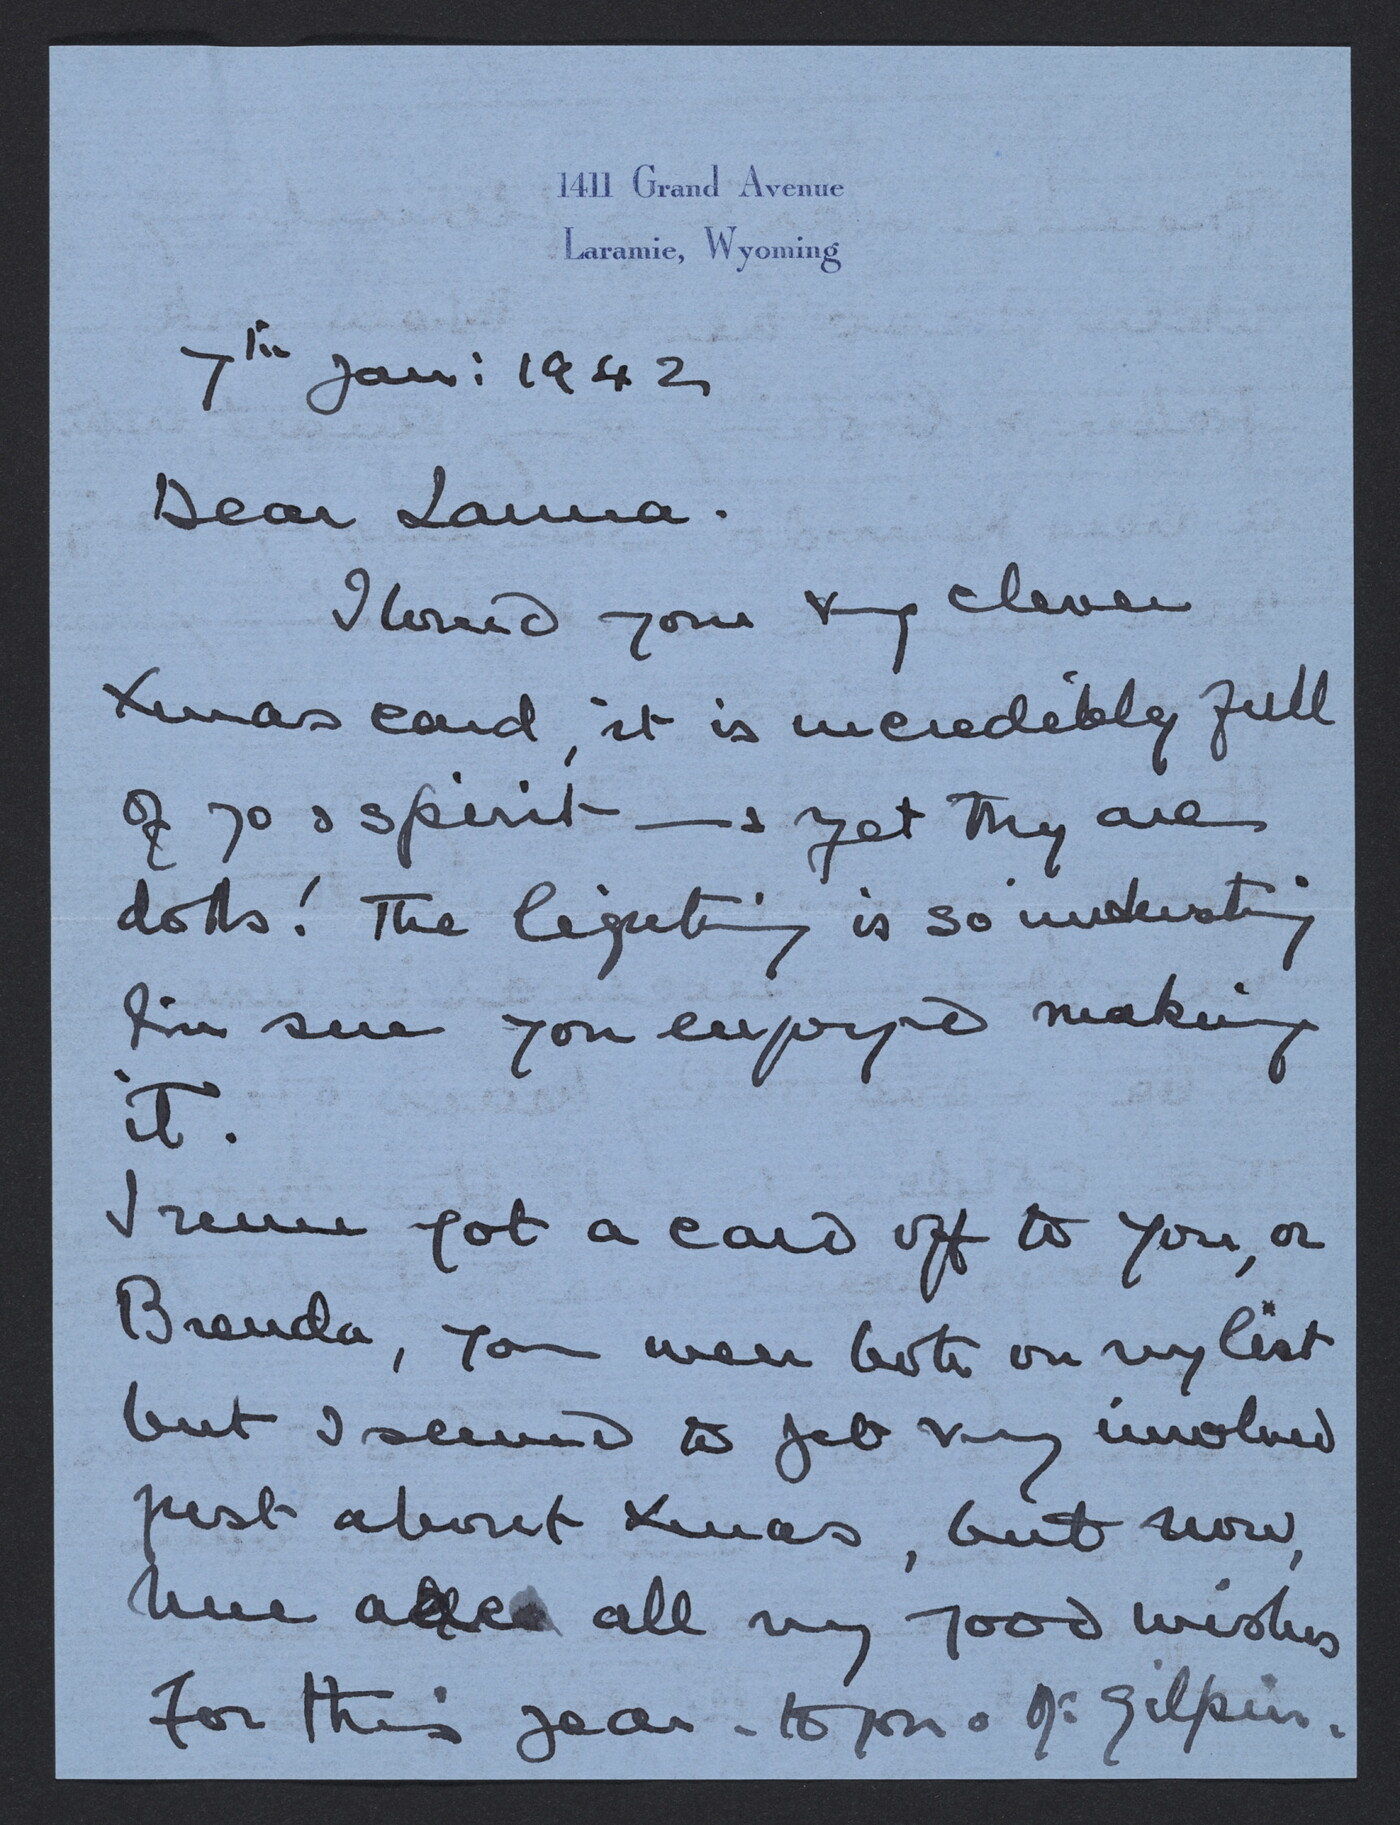 1411 Grand Avenue
Laramie, Wyoming
7th Jan: 1942
Dear Laura.
I loved your very clever
Xmas card, it is incredibly full
of go & spirit — & yet they are
dolls! The lighting is so interesting
I'm sure you enjoyed making
it.
I never got a card off to you, or
Brenda, you were both on my list
but I seemed to get very involved
just about Xmas, but now,
here are all my good wishes
For this year - to you & Mr Gilpin.